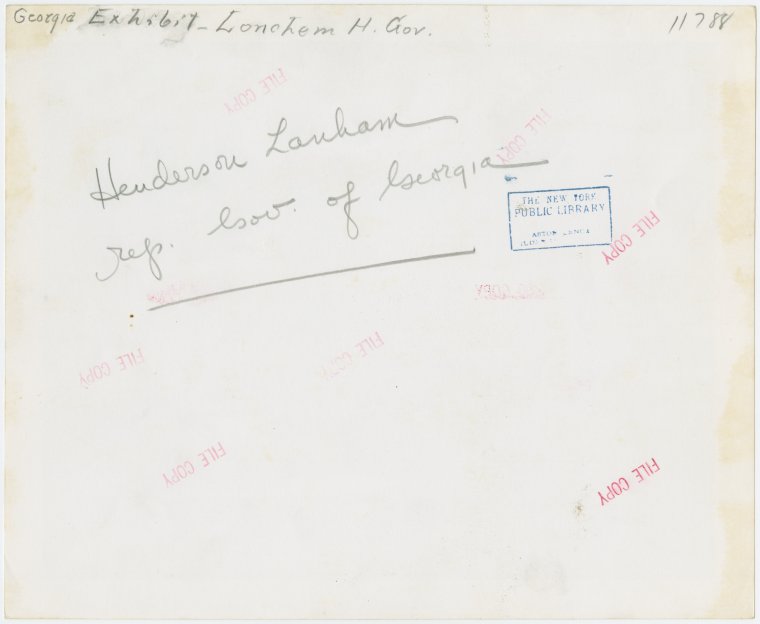 Georgia Exhibit - Lonchem H. Gov.
11788
FILE COPY
Henderson Lanham
FILE COPY
rep. Gov. of Georgia
THE NEW YORK
PUBLIC LIBRARY
ASTOR LENOX
FILE COPY
FILE COPY
FILE COPY
FILE COPY
FILE COPY
FILE COPY